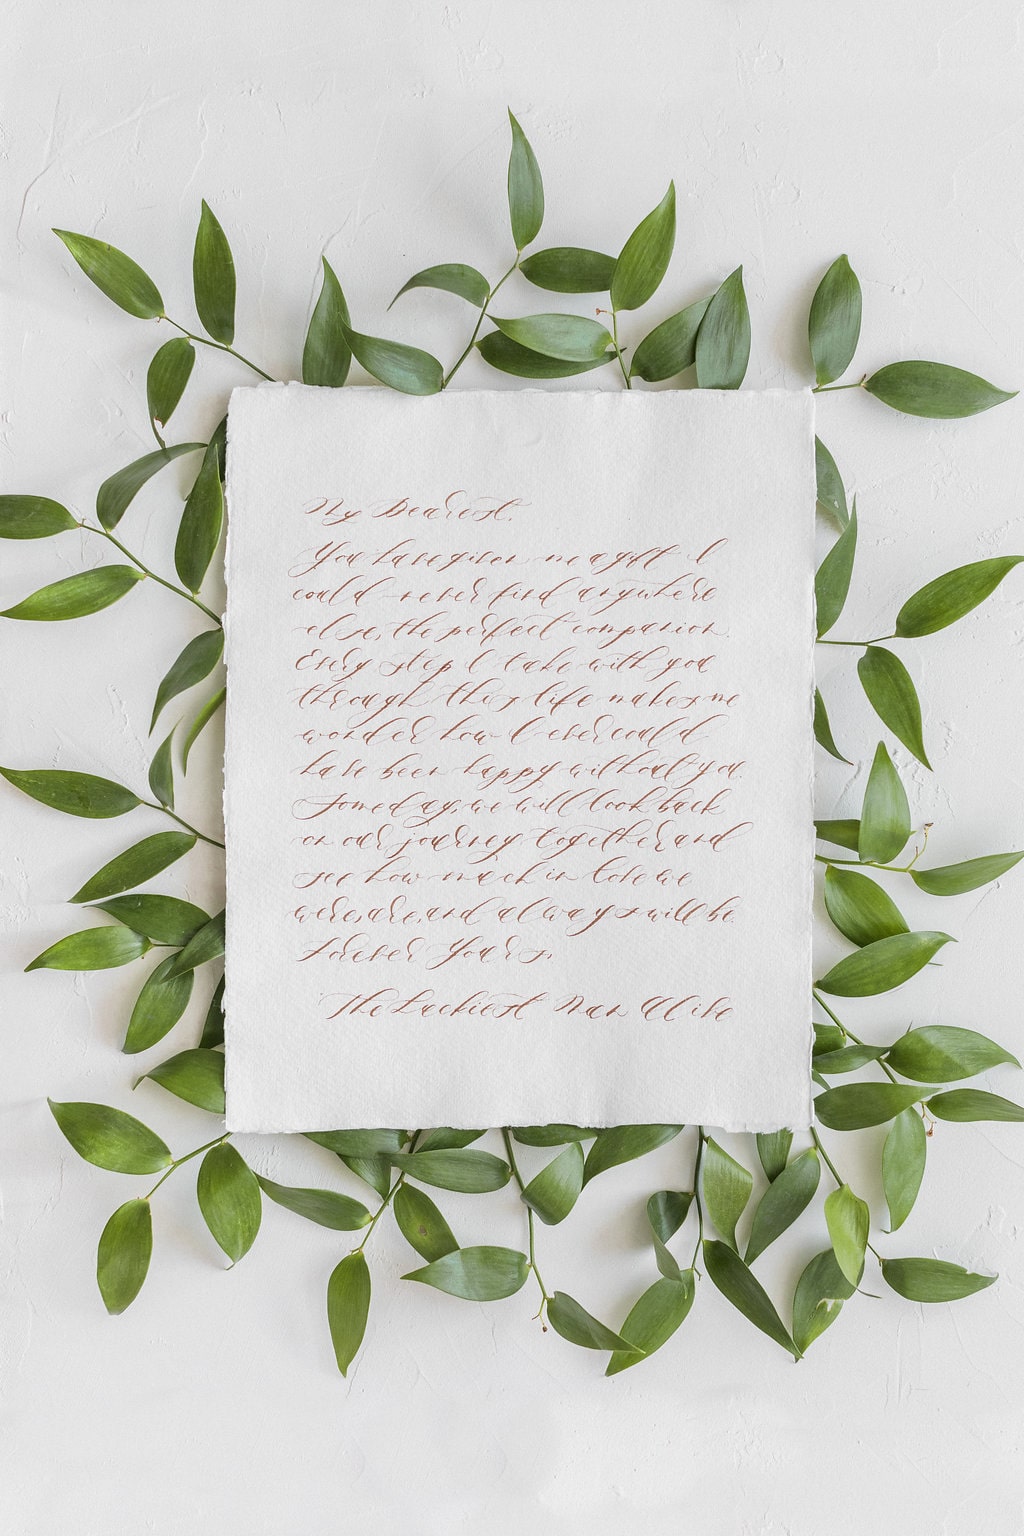 My Dearest,
You have given me a gift I
could never find anywhere
else, the perfect companion.
Every step I take with you
through this life makes me
wonder how I ever could
have been happy without you.
Someday, we will look back
on our journey together and
see how much in love we
were, are, and always will be.
Forever Yours,
The Luckiest Man Alive